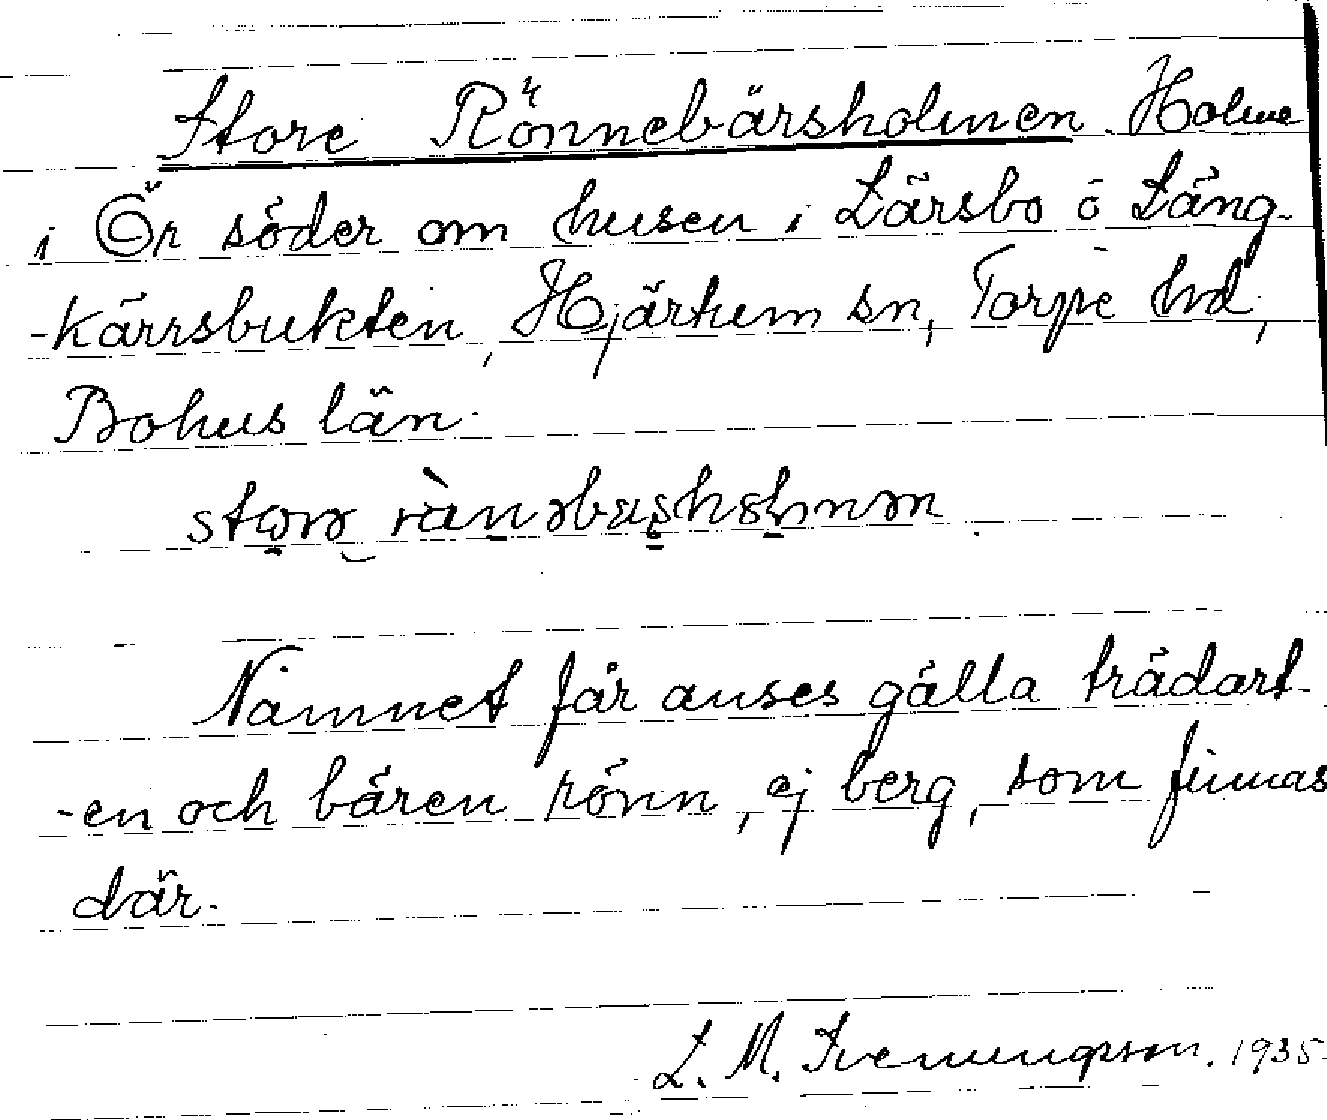 Store Rönnebärsholmen. Holme
i Ör söder om husen i Lärsbo ö Lång-
-kärrsbukten, Hjärtum sn, Torpe hd,
Bohus län.
Namnet får anses gälla trädart-
-en och bären rönn, ej berg, som finnas
där.
L. M. Svenungsson. 1935